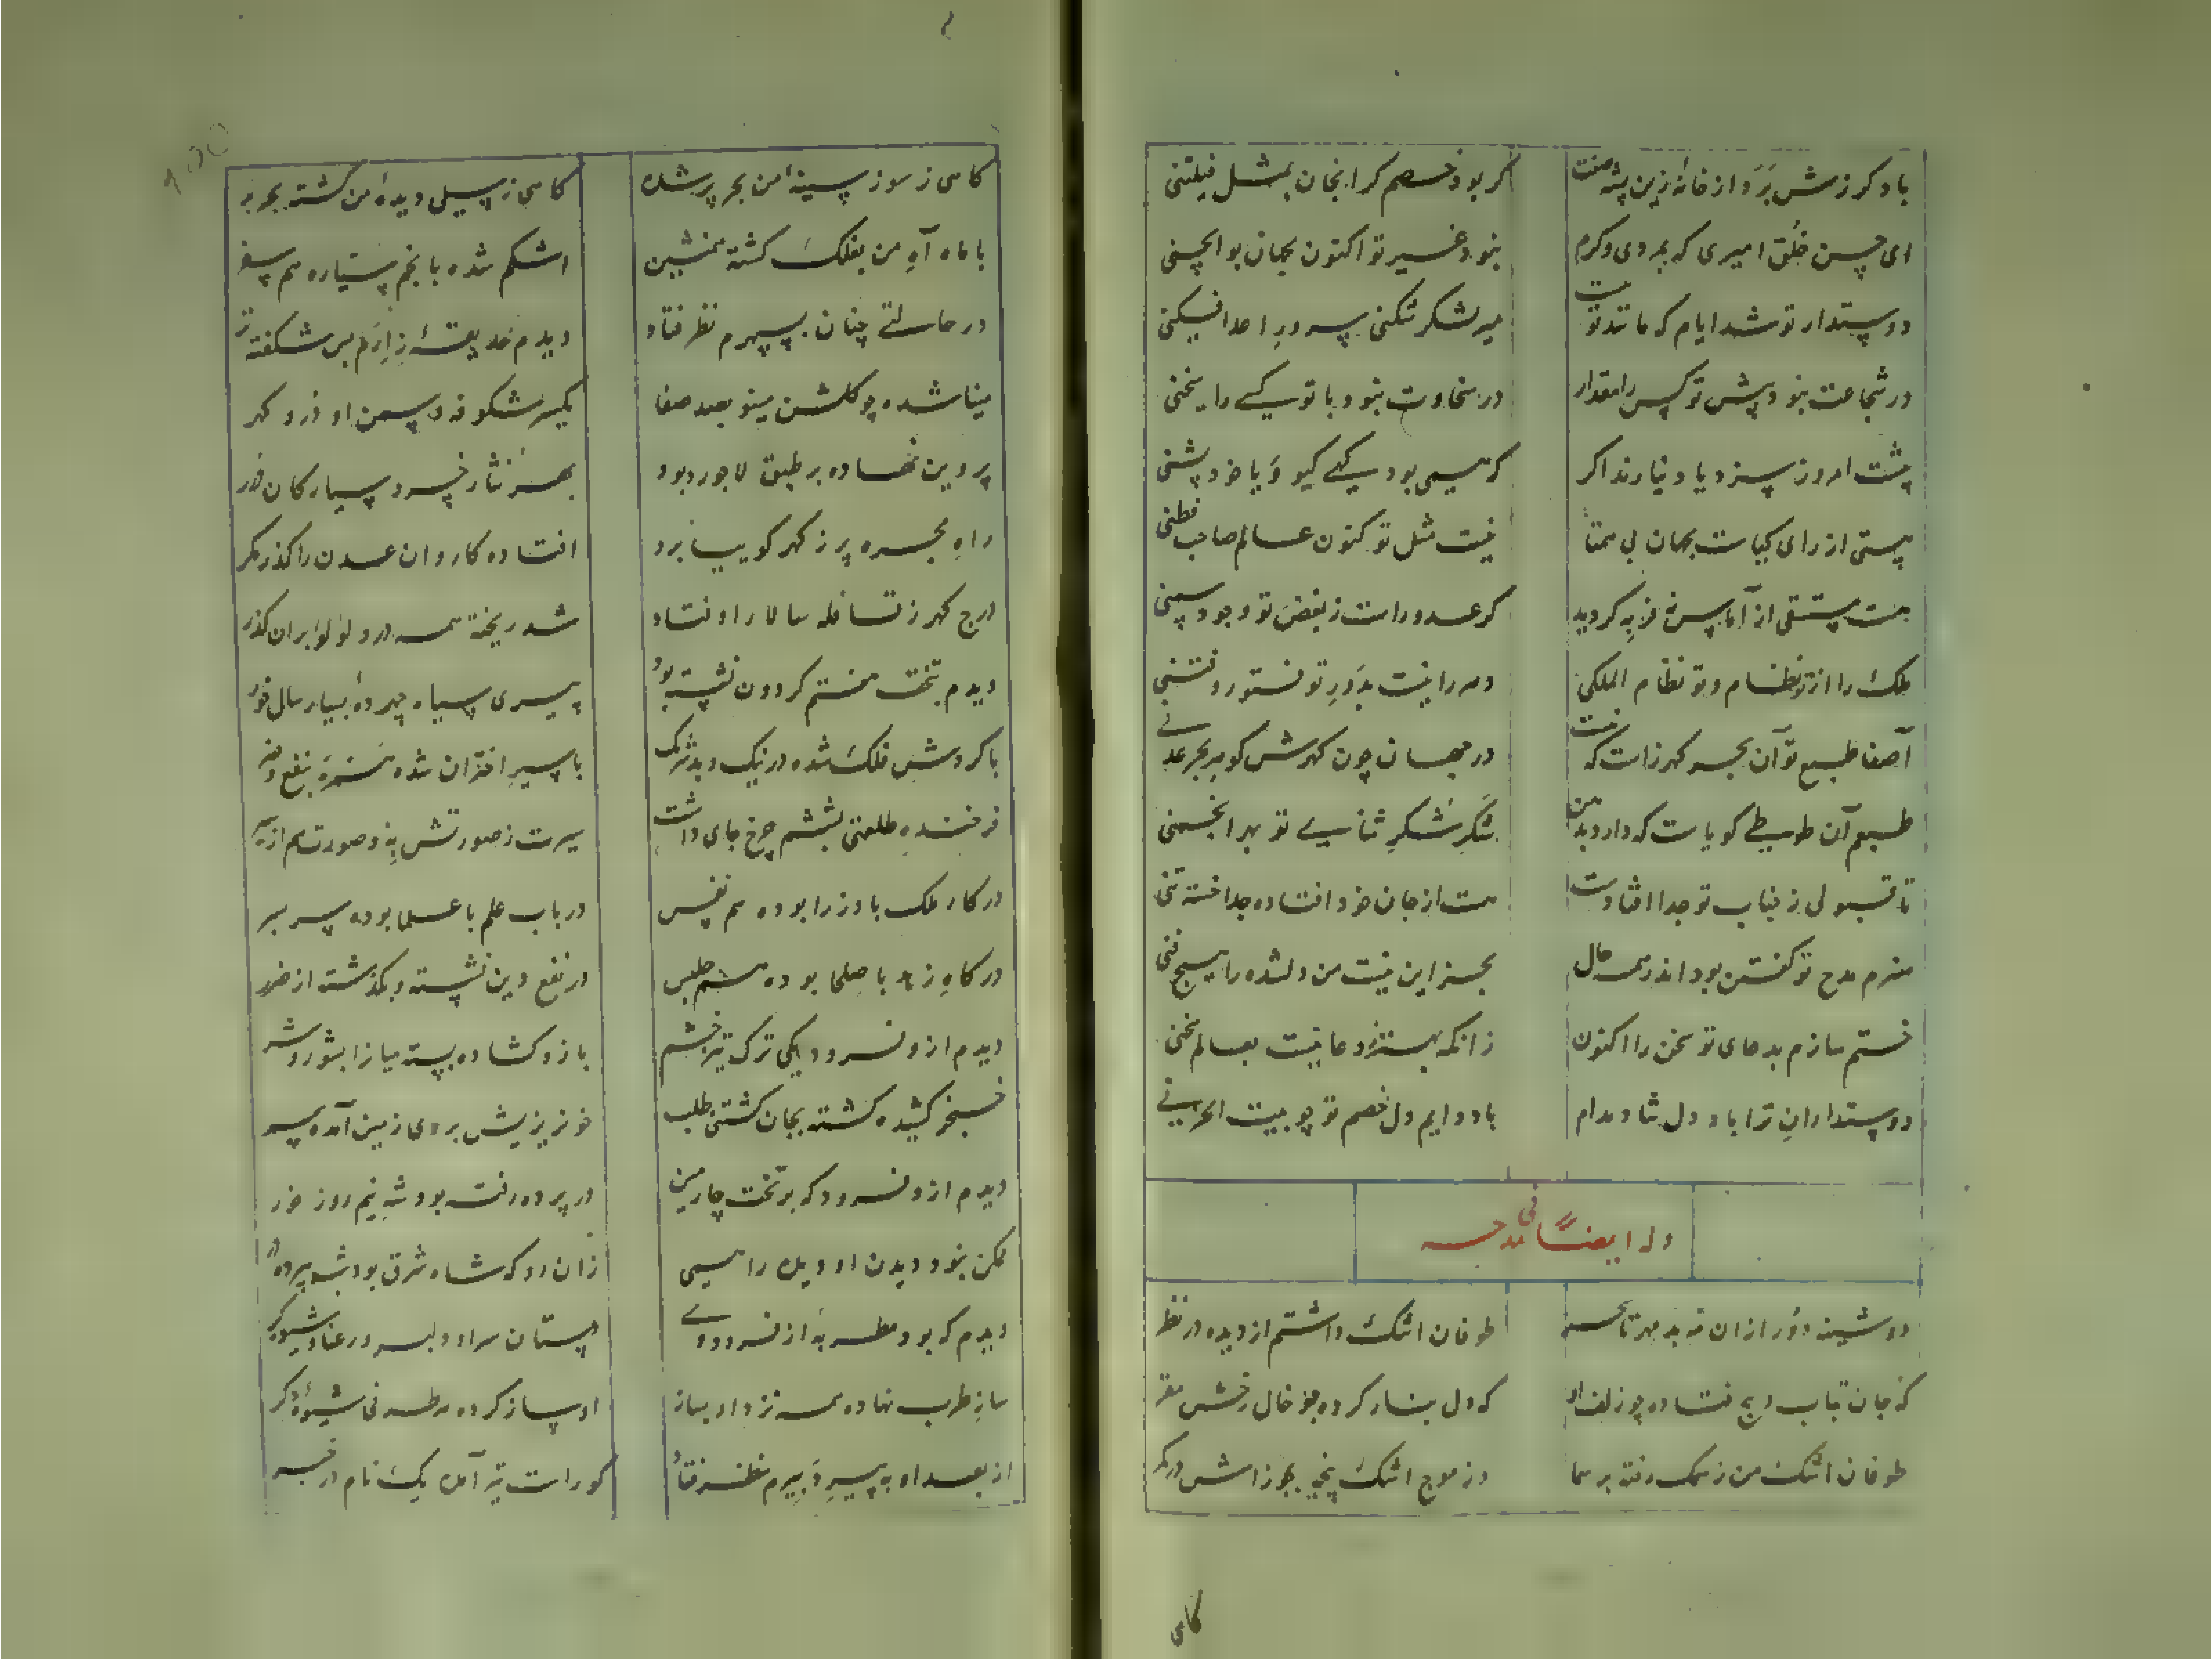 باد کرزش برد از خانهٔ زین پشه صفت
کر بود خصم کرانجان بمثل پیلتنی
ای حسن خلق امیری که بمردی و کرم
بنود غیر تو اکنون بجهان بوالحسنی
دوستدار تو شد ایام که مانند تو نیست
میر لشکر شکنی سرور اعدا فکنی
در شجاعت بنود پیش تو کس را مقدار
در سخاوت بنود با تو کسی را سخنی
پیشت امروز سزد یاد نیارند اکر
که همی بود یکی کیو و یا خود پشنی
هستی از رای و کیاست بجهان بی همتا
نیست مثل تو کنون عالم صاحب فطنی
هست مستسقی از آماس نه فربه کردید
کر عدو راست ز بغض تو وجود سمنی
ملک را از تو نظام و تو نظام الملکی
دهر را نیست بدور تو فتور و فتنی
آصفا طبع تو آن بحر کهرزاست که نیست
در جهان چون کهرش کوهر بحر عدنی
طبعم آن طوطی کویاست که دارد بدهن
شکر شکر ثنای تو بهر انجمنی
تا قبولی ز جناب تو جدا افتادست
هست از جان خود افتاده جدا خسته تنی
هنرم مدح تو کفتن بود اندر همه حال
بجز این نیست من دلشده را هیچ فنی
ختم سازم بدعای تو سخن را اکنون
زانکه بهتر ز دعا نیست بعالم سخنی
دوستداران ترا باد دل شاد مدام
باد دایم دل خصم تو چو بیت الحزنی
وله ایضاً فی مدحه
دوشینه دور از ان مه بد مهر تا سحر
طوفان اشک داشتم از دیده در نظر
که جان بتاب و پیچ فتاده چو زلف او
که دل بنار کرده چو خال رخش مقر
طوفان اشک من ز سمک رفته بر سما
وز موج اشک پنجه بجوزاش در کمر
کاهی
کاهی ز سوز سینهٔ من بحر پر شده
کاهی ز سیل دیدهٔ من کشته بحر بر
با ماه آه من بفلک کشته همنشین
اشکم شده بانجم سیاره هم سفر
در حالتی چنان بسپهرم نظر فتاد
دیدم حدیقهٔ ز ارم بس شکفته تر
مینا شده چو کلشن مینو بصد صفا
یکسر شکوفه و سمن او در و کهر
پروین نهاده بر طبق لاجورد بود
بهر نثار خسرو سیارکان درر
راه مجره پر ز کهر کوییا بزد
افتاده کاروان عدن را کذر مکر
درج کهر ز قافله سالار اوفتاد
شد ریخته همه در و لؤلؤ بران کذر
دیدم بتخت هفتم کردون نشسته بود
پیری سیاه چهرهٔ بسیار سال خور
با کردش فلک شده در نیک و بد شریک
با سیر اختران شده همره بنفع و ضر
فرخنده طلعتی بششم چرخ جای داشت
سیرت ز صورتش به و صورت هم از سیر
در کار ملک با وزرا بوده هم نفس
در باب علم با علما بوده سر بسر
در کاه زهد با صلحا بوده هم جلیس
در نفع دین نشسته و بکذشته از ضرر
دیدم ازو فرود یکی ترک تیز خشم
بازو کشاده بسته میانرا بشور و شر
خنجر کشیده کشته بجان کشتنی طلب
خونریزیش بروی زمین آمده سمر
دیدم ازو فرود که بر تخت چارمین
در پرده رفته بود شه نیم روز خور
ممکن نبود دیدن او دیده را همی
زان رو که شاه شرق بود شب بپرده در
دیدم که بود مطربهٔ از فرود وی
دستان سرا و دلبر و رعنا و شیوه کر
ساز طرب نهاده همه نزد او بساز
او ساز کرده مطربی شیوهٔ دکر
از بعد او به پیر دبیرم نظر فتاد
کوراست تیر آمده یک نام در خبر